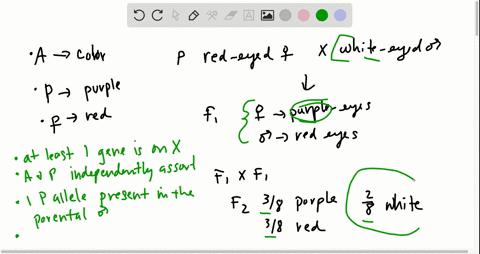 · A → color
· P → purple
· p → red
· at least 1 gene is on X
· A & P independently assort
· 1 P allele present in the parental ♂
·
P red-eyed ♀ X white-eyed ♂
↓
F₁ { ♀ → purple-eyes
♂ → red eyes
F₁ X F₁
F₂ 3/8 purple 2/8 white
3/8 red